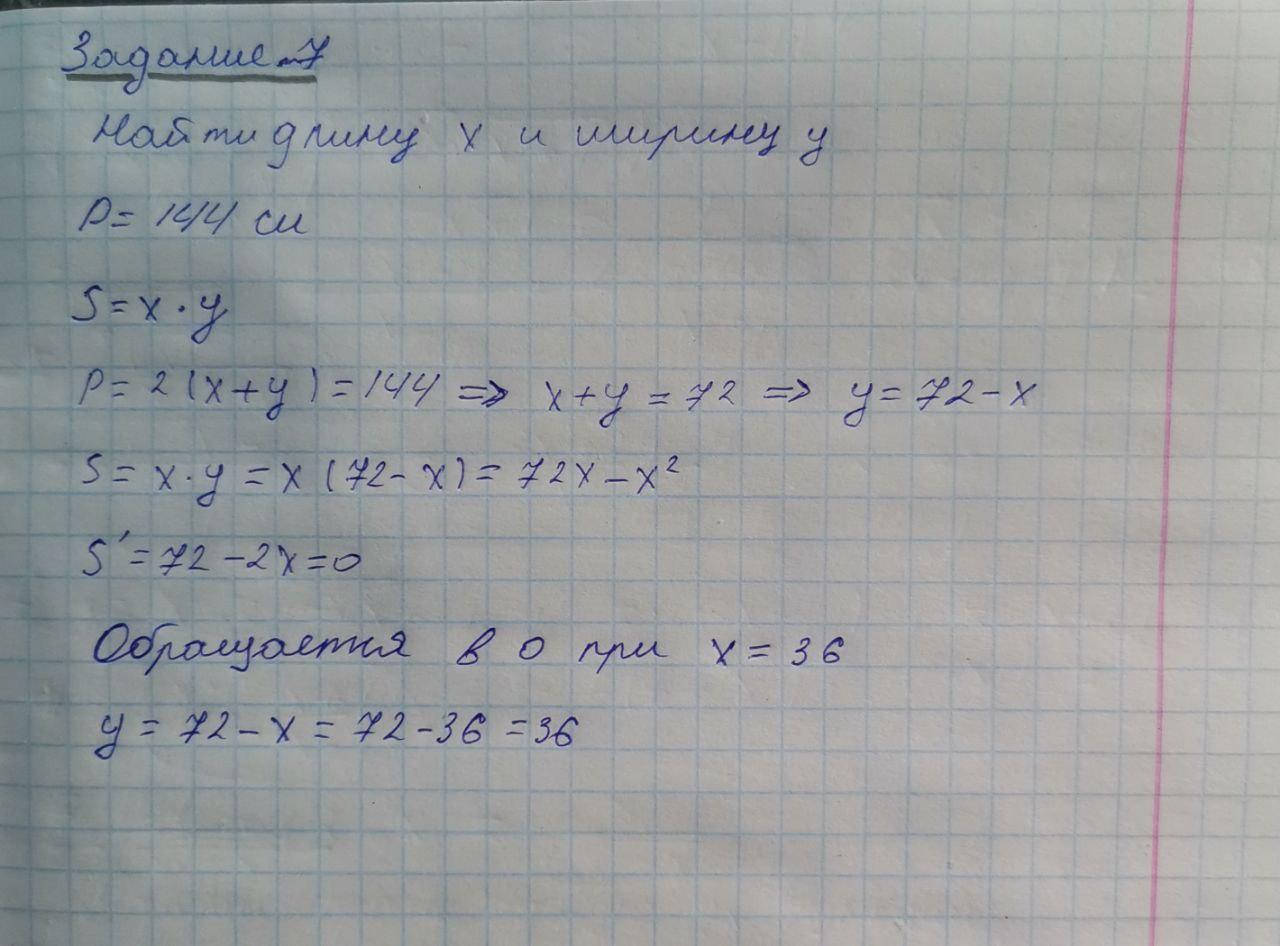 Задание-7
Найти длину x и ширину y
P= 144 см
S=x·y
P= 2(x+y)=144 => x+y=72 => y=72-x
S= x·y = x(72-x)= 72x-x²
S'=72-2x=0
Обращается в 0 при x=36
y = 72-x = 72-36=36